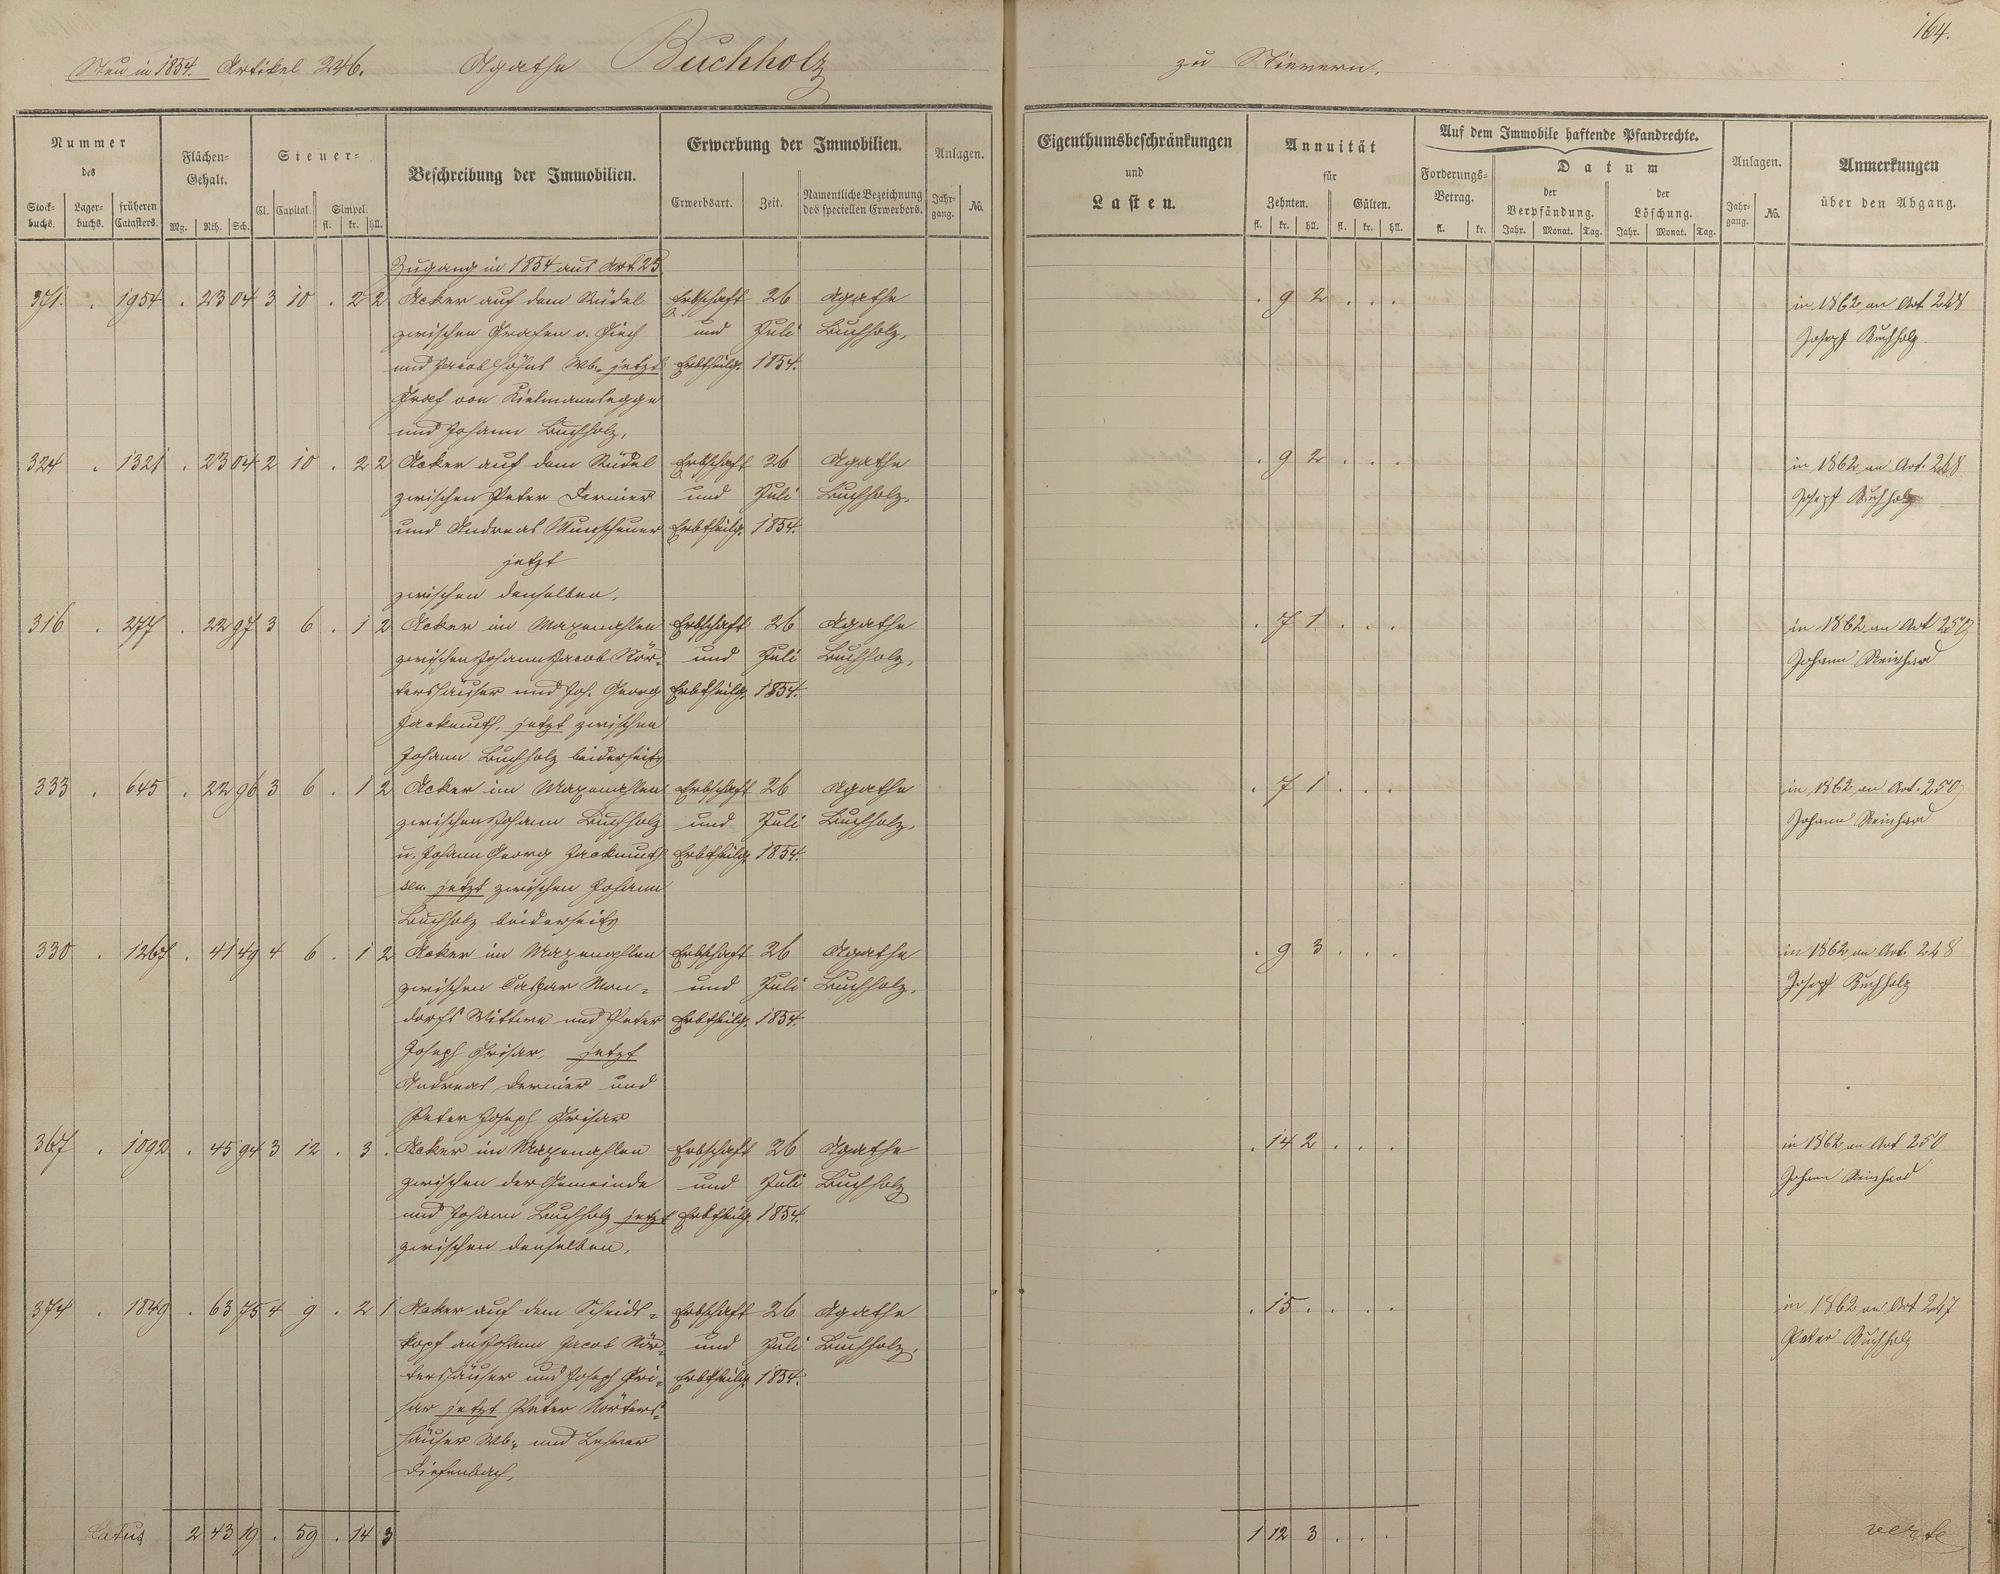 164.
Neu in 1854. Artikel 246. Agathe Buchholz zu Nievern.
Nummer des
Stock-buchs. Lager-buchs. früheren Catasters.
Flächen-Gehalt.
Mg. Rth. Sch.
Steuer-
Cl. Capital. Simpel.
fl. kr. hll.
Beschreibung der Immobilien.
Erwerbung der Immobilien.
Erwerbsart. Zeit. Namentliche Bezeichnung des speciellen Erwerbers.
Anlagen.
Jahr-gang. No.
Eigenthumsbeschränkungen
und
Lasten.
Annuität
für
Zehnten. Gülten.
fl. kr. hll. fl. kr. hll.
Auf dem Immobile haftende Pfandrechte.
Forderungs-Betrag.
fl. kr.
Datum
der Verpfändung. der Löschung.
Jahr. Monat. Tag. Jahr. Monat. Tag.
Anlagen.
Jahr-gang. No.
Anmerkungen
über den Abgang.
Zugang in 1854 aus Art 25
371. . 1954 . 23 04 3 10 . 2 2 Acker auf dem Rüdel Erbschaft 26 Agathe . 9 2 . . . in 1862 an Art 248
zwischen Grafen v. Giech und Juli Buchholz, Joseph Buchholz
und Jacob Höhns Wb. jetzt Erbtheilg. 1854.
Graf von Kielmannsegge
und Johann Buchholz,
324 . 1321 . 23 04 2 10 . 2 2 Acker auf dem Rüdel Erbschaft 26 Agathe . 9 2 . . . in 1862 an Art. 248
zwischen Peter Dernier und Juli Buchholz, Joseph Buchholz
und Andreas Erbtheilg. 1854.
jetzt
zwischen denselben,
316 . 277 . 22 97 3 6 . 1 2 Acker im Erbschaft 26 Agathe . 7 1 . . . in 1862 an Art 250
zwischen Johann Jacob Nör- und Juli Buchholz, Johann Reinhard
tershäuser und Joh. Georg Erbtheilg. 1854.
Zackmuth, jetzt zwischen
Johann Buchholz beiderseits
333 . 645 . 22 96 3 6 . 1 2 Acker im Erbschaft 26 Agathe . 7 1 . . . in 1862 an Art. 250
zwischen Johann Buchholz und Juli Buchholz, Johann Reinhard
u. Johann Georg Zackmuth Erbtheilg. 1854.
sen. jetzt zwischen Johann
Buchholz beiderseits
330 . 1267 . 41 49 4 6 . 1 2 Acker im Erbschaft 26 Agathe . 9 3 . . . in 1862 an Art. 248
zwischen Caspar Mon- und Juli Buchholz, Joseph Buchholz
dorfs Wittwe und Peter Erbtheilg. 1854.
Joseph Grisar, jetzt
Andreas Dernier und
Peter Joseph Grisar
367 . 1092 . 45 94 3 12 . 3 . Acker im Erbschaft 26 Agathe . 14 2 . . . in 1862 an Art 250
zwischen der Gemeinde und Juli Buchholz Johann Reinhard
und Johann Buchholz jetzt Erbtheilg. 1854.
zwischen denselben,
374 . 1849 . 63 75 4 9 . 2 1 Acker auf dem Scheids- Erbschaft 26 Agathe . 15 . . . . in 1862 an Art 247
kopf an Johann Jacob Nör- und Juli Buchholz, Peter Buchholz
tershäuser und Joseph Gri- Erbtheilg. 1854.
sar jetzt Peter Nörters-
häuser Wb. und Lehrer
Diefenbach,
Latus 2 43 19 . 59 . 14 3 1 12 3 . . . verte